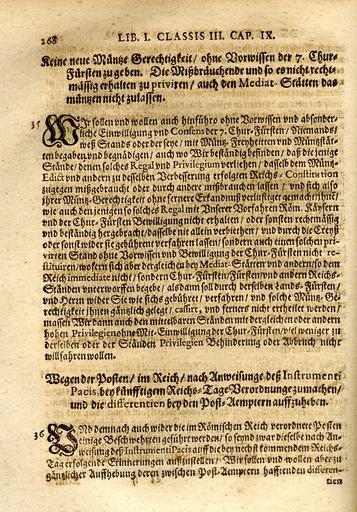 268 LIB. I. CLASSIS III. CAP. IX.
Keine neue Müntze Gerechtigkeit / ohne Vorwissen der 7. Chur-
Fürsten zu geben. Die Mißbräuchende und so es nicht recht-
mässig erhalten zu priviren / auch den Mediat-Stätten das
müntzen nicht zulassen.
35 Wir sollen und wollen auch hinführo ohne Vorwissen und absonder-
liche Einwilligung und Consens der 7. Chur-Fürsten / Niemands /
weß Stands oder der seye / mit Müntz-Freyheiten und Müntzstät-
ten begaben und begnädigen / auch wo Wir beständig befinden / daß die jenige
Stände / denen solches Regal und Privilegium verliehen / dasselb dem Müntz-
Edict und andern zu desselben Verbesserung erfolgten Reichs-Constitution
zugegen mißgebraucht oder durch andere mißbrauchen lassen / und sich also
ihrer Müntz-Gerechtigkeit ohne fernere Erkandnuß verlustiget gemacht
wie auch den jenigen so solches Regal mit Unserer Vorfahren Röm. Käysern
und der Chur-Fürsten Bewilligung nicht erhalten / oder sonsten rechtmässig
und beständig hergebracht / dasselbe nit allein verbiethen / und durch die Creyß
oder sonst wider sie gebührend verfahren lassen / sondern auch einen solchen pri-
virten Stand ohne Vorwissen und Bewilligung der Chur-Fürsten nicht re-
stituiren / wo fern sich aber dergleichen bey Mediat-Stätten und andern so dem
Reich immediatè nicht / sondern Chur-Fürsten / Fürsten und andern Reichs-
Ständen unterworffen begebe / alsdann soll durch derselben Lands-Fürsten /
und Herrn wider Sie wie sichs gebühret / verfahren / und solche Müntz-Ge-
rechtigkeit ihnen gäntzlich gelegt / cassirt, und ferners nicht ertheilet werden /
massen Wir dann auch den mittelbaren Ständen mit dergleichen oder andern
hohen Privilegien ohne Mit-Einwilligung der Chur-Fürsten / viel weniger zu
derselben oder der Ständen Privilegien Behinderung oder Abbruch nicht
willfahren wollen.
Wegen der Posten / im Reich / nach Anweisunge deß Instrumenti
Pacis, bey künfftigem Reichs-Tage Verordnunge zu machen /
und die differentien bey den Post-Aemptern auffzuheben.
36 Und demnach auch wider die im Römischen Reich verordnete Posten
einige Beschwehren geführt worden / so seynd zwar dieselbe nach An-
weisung deß Instrumenti Pacis auff die bey nechst kommendem Reichs-
Tag erfolgende Erinnerungen außzustellen / Wir sollen und wollen aber zu
gäntzlicher Auffhebung deren zwischen Post-Aemptern hafftenden differen-
tien